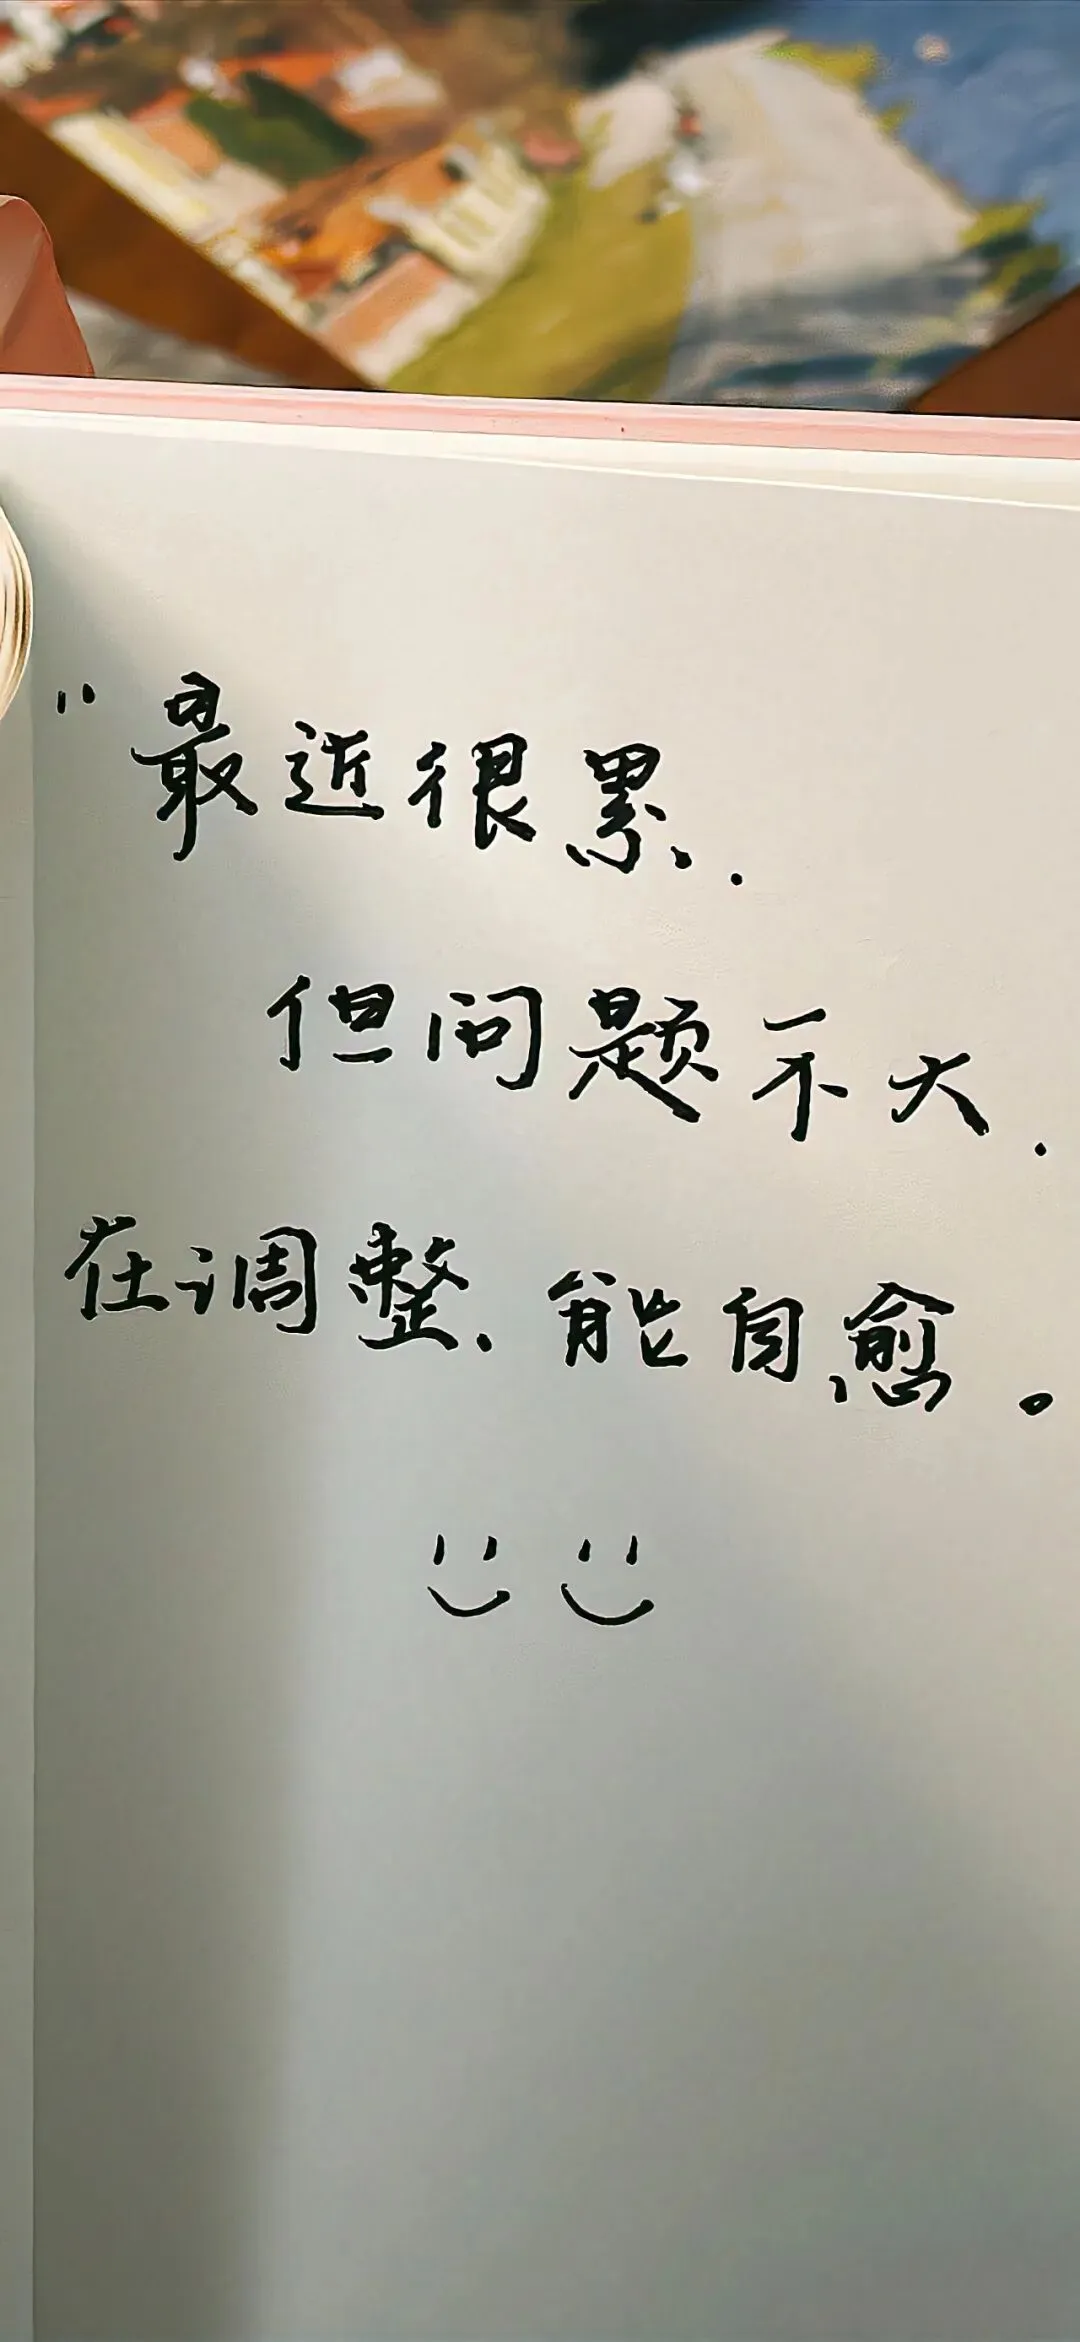 "最近很累..
但问题不大.
在调整、能自愈。